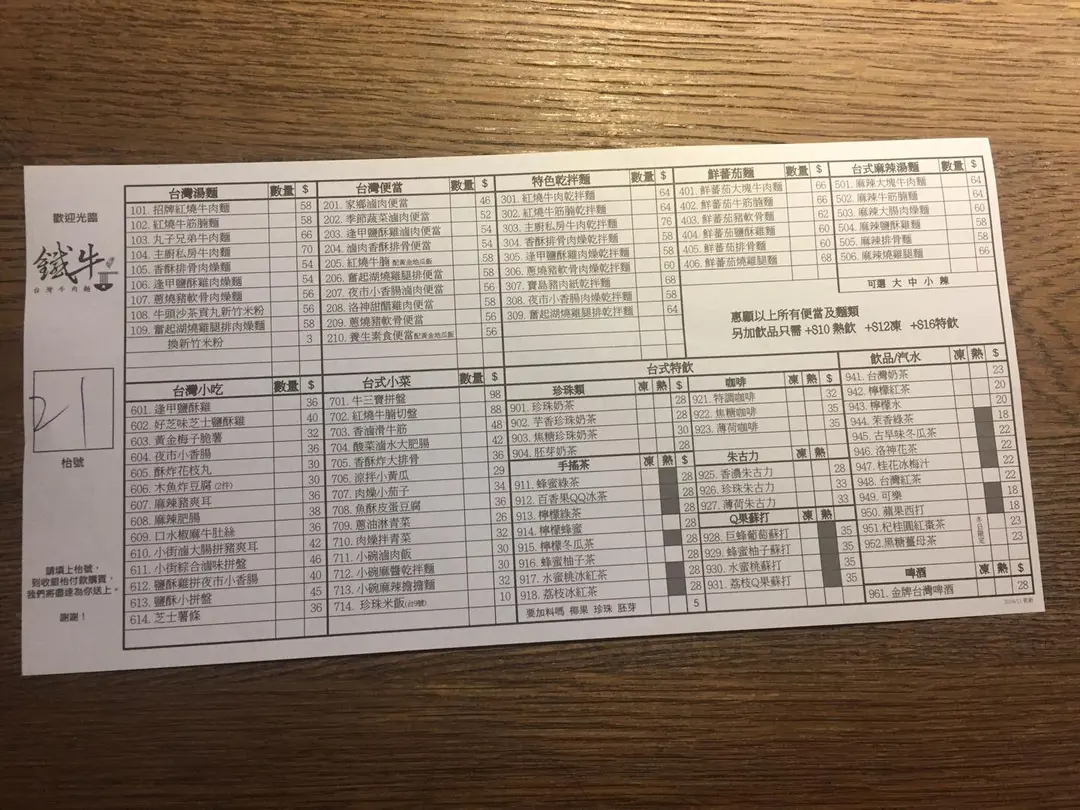 歡迎光臨
鐵牛
台灣牛肉麵
21
枱號
請填上枱號,
到收銀枱付款購買,
我們將盡速為你送上。
謝謝!
台灣湯麵 數量 $
101. 招牌紅燒牛肉麵 58
102. 紅燒牛筋腩麵 58
103. 丸子兄弟牛肉麵 66
104. 主厨私房牛肉麵 70
105. 香酥排骨肉燥麵 54
106. 逢甲鹽酥雞肉燥麵 54
107. 蔥燒豬軟骨肉燥麵 56
108. 牛頭沙茶貢丸新竹米粉 56
109. 奮起湖燒雞腿排肉燥麵 58
換新竹米粉 3
台灣便當 數量 $
201. 家鄉滷肉便當 46
202. 季節蔬菜滷肉便當 52
203. 逢甲鹽酥雞滷肉便當 54
204. 滷肉香酥排骨便當 54
205. 紅燒牛腩 配黃金地瓜飯 58
206. 奮起湖燒雞腿排便當 54
207. 夜市小香腸滷肉便當 56
208. 洛神甜醋雞肉便當 58
209. 蔥燒豬軟骨便當 56
210. 養生素食便當 配黃金地瓜飯 56
特色乾拌麵 數量 $
301. 紅燒牛肉乾拌麵 64
302. 紅燒牛筋腩乾拌麵 64
303. 主廚私房牛肉乾拌麵 76
304. 香酥排骨肉燥乾拌麵 58
305. 逢甲鹽酥雞肉燥乾拌麵 58
306. 蔥燒豬軟骨肉燥乾拌麵 60
307. 寶島滷肉紙乾拌麵 58
308. 夜市小香腸肉燥乾拌麵 58
309. 奮起湖燒雞腿排乾拌麵 64
鮮蕃茄麵 數量 $
401. 鮮蕃茄大塊牛肉麵 66
402. 鮮蕃茄牛筋腩麵 66
403. 鮮蕃茄豬軟骨麵 62
404. 鮮蕃茄鹽酥雞麵 60
405. 鮮蕃茄排骨麵 60
406. 鮮蕃茄燒雞腿麵 68
台式麻辣湯麵 數量 $
501. 麻辣大塊牛肉麵 64
502. 麻辣牛筋腩麵 64
503. 麻辣大腸肉燥麵 60
504. 麻辣鹽酥雞麵 58
505. 麻辣排骨麵 58
506. 麻辣燒雞腿麵 66
可選 大 中 小 辣
惠顧以上所有便當及麵類
另加飲品只需 +$10 熱飲 +$12凍 +$16特飲
台灣小吃 數量 $
601. 逢甲鹽酥雞 36
602. 好芝味芝士鹽酥雞 40
603. 黃金梅子脆薯 32
604. 夜市小香腸 36
605. 酥炸花枝丸 30
606. 木魚炸豆腐 (2件) 36
607. 麻辣豬爽耳 30
608. 麻辣肥腸 36
609. 口水椒麻牛肚絲 36
610. 小街滷大腸拼豬爽耳 44
611. 小街綜合滷味拼盤 46
612. 鹽酥雞拼夜市小香腸 40
613. 鹽酥小拼盤 45
614. 芝士薯條 36
台式小菜 數量 $
701. 牛三寶拼盤 98
702. 紅燒牛腩切盤 88
703. 香滷滑牛筋 48
704. 酸菜滷水大肥腸 42
705. 香酥炸大排骨 36
706. 涼拌小黃瓜 29
707. 肉燥小茄子 34
708. 魚酥皮蛋豆腐 36
709. 蔥油淋青菜 26
710. 肉燥拌青菜 32
711. 小碗滷肉飯 30
712. 小碗麻醬乾拌麵 30
713. 小碗麻辣擔擔麵 32
714. 珍珠米飯(台9號) 10
台式特飲
珍珠類 凍 熱 $
901. 珍珠奶茶 28
902. 芋香珍珠奶茶 28
903. 焦糖珍珠奶茶 30
904. 胚芽奶茶 28
手搖茶 凍 熱 $
911. 蜂蜜綠茶 28
912. 百香果QQ冰茶 28
913. 檸檬綠茶 28
914. 檸檬蜂蜜 28
915. 檸檬冬瓜茶 30
916. 蜂蜜柚子茶 28
917. 水蜜桃冰紅茶 28
918. 荔枝冰紅茶 28
要加料嗎 椰果 珍珠 胚芽 5
咖啡 凍 熱 $
921. 特調咖啡 32
922. 焦糖咖啡 35
923. 薄荷咖啡 35
朱古力 凍 熱
925. 香濃朱古力 28
926. 珍珠朱古力 33
927. 薄荷朱古力 33
Q果蘇打 凍 熱
928. 巨蜂葡萄蘇打 35
929. 蜂蜜柚子蘇打 35
930. 水蜜桃蘇打 35
931. 荔枝Q果蘇打 35
飲品/汽水 凍 熱 $
941. 台灣奶茶 23
942. 檸檬紅茶 20
943. 檸檬水 20
944. 茉香綠茶 18
945. 古早味冬瓜茶 22
946. 洛神花茶 22
947. 桂花冰梅汁 22
948. 台灣紅茶 18
949. 可樂 18
950. 蘋果西打 18
951. 杞桂圓紅棗茶 23
952. 黑糖薑母茶 23
啤酒 凍 熱 $
961. 金牌台灣啤酒 28